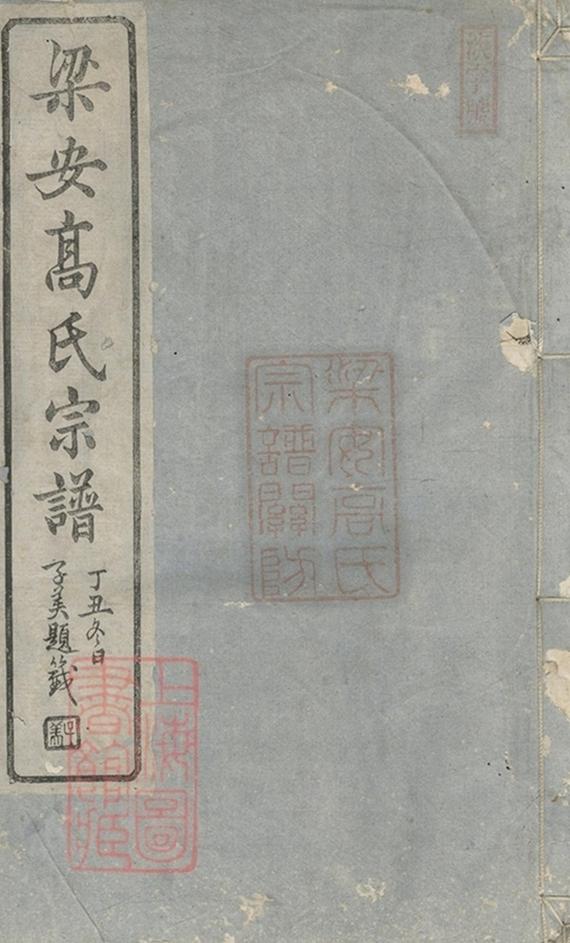 字號
梁安高氏
宗譜關防
梁安髙氏宗譜
丁丑冬日
子美題籤
子美
上海圖
書館藏